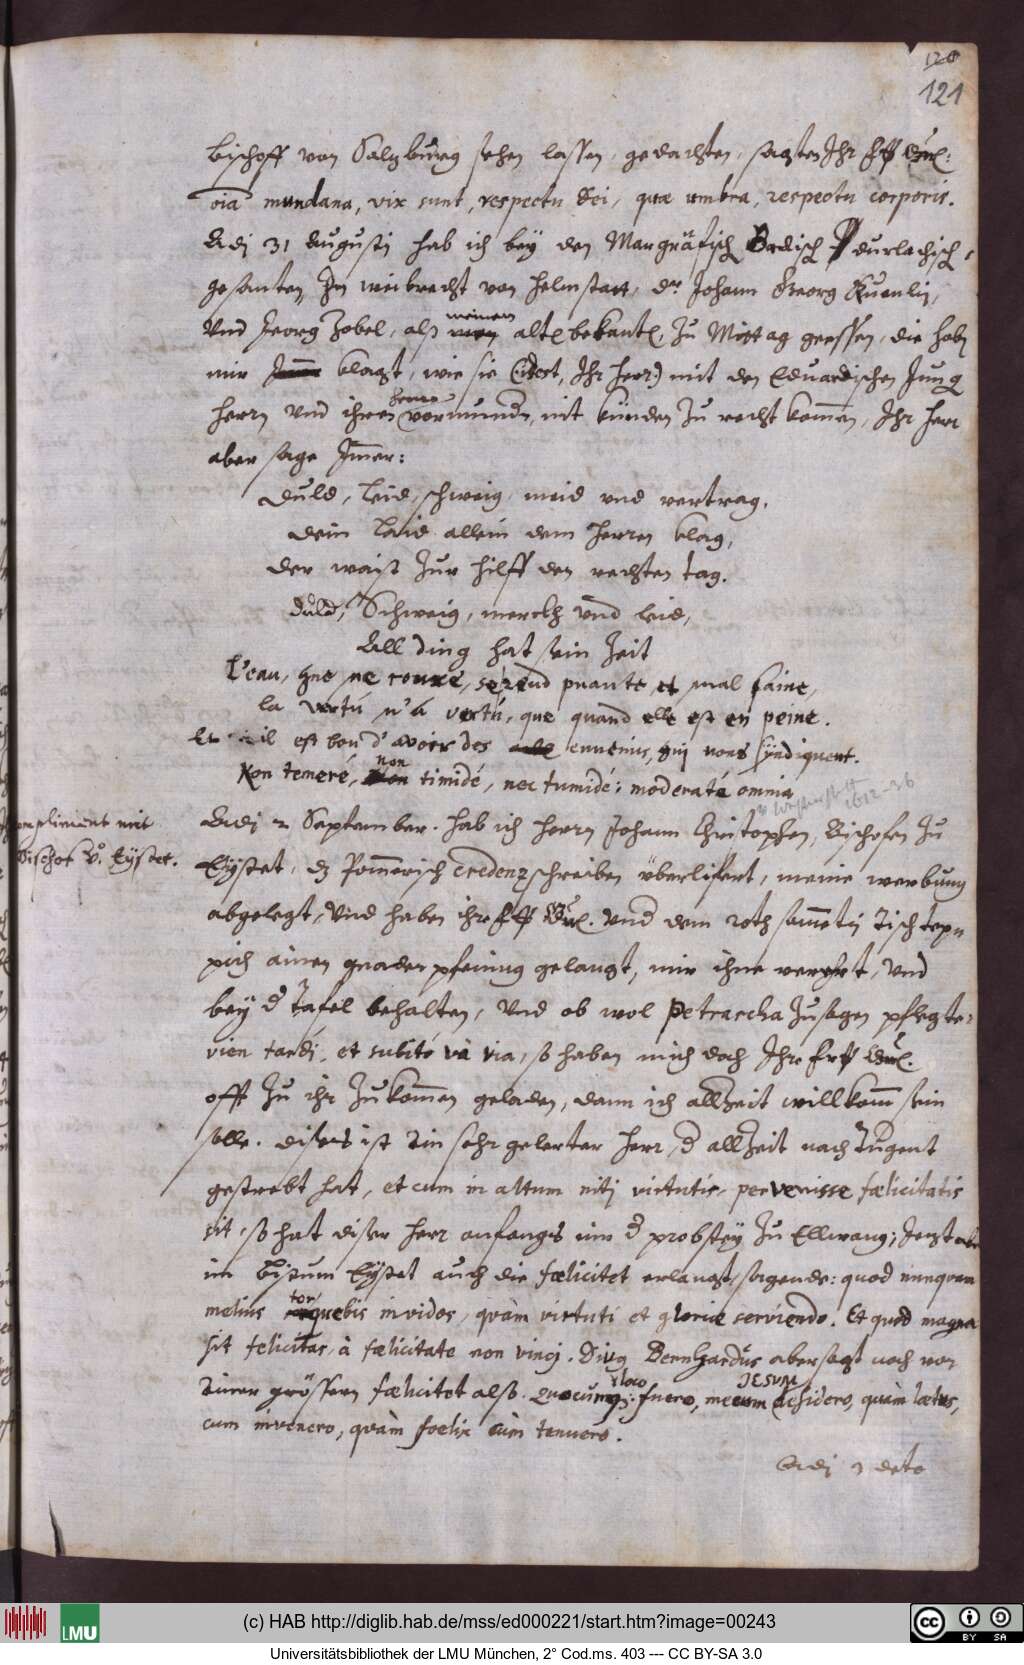 120
121
Bischoff von Salzburg sehen lassen, gedachten, sagten Ihr Frl Dur:
oia mundana, vix sunt, respectu Dei, quae umbra, respectu corporis.
Adi 31 Augustj hab ich bey den Margräfisch Badisch Durlachisch
gesanten, Weibrecht von Helmstatt, Dr Johann Georg Kuenlin,
Vnd Georg Zobel, alß meinen alte bekante, Zu Mittag geessen, die haben
mir klagt, wie sie (idest, Ihr herr) mit den Eduardischen Jung
herrn Vnd ihren vormunden, nit künden Zu recht kommen, Ihr herr
aber sage Immer:
Duld, leid, schweig, meid vnd vertrag,
dein laid allein dem herren klag,
der waist Zur hilff den rechten tag.
Duld, Schweig, merckh Vnd leid,
All ding hat sein Zeit
L'eau, que ne coure, se rend puante et mal saine,
la vertú n'á vertú, que quand elle est en peine.
il est bon d'avoir des ennemis, qui nous syndiquent.
Non temeré, non timidé, nec tumidé: moderaté omnia
1612-36
compliment mit
Bischof v. Eystet.
Adi 2 September hab ich herrn Johann Christophen, Bischofen Zu
Eystet, dz Pommerisch Credenzschreiben überlifert, meine werbung
abgelegt, Vnd haben ihr Frl Dur. Vnd dem roth sammetin Tisch tepp
pich ainen gnaden pfening gelangt, mir ihne verehrt, Vnd
bey der Tafel behalten, Vnd ob wol Petrarcha Zusagen pflegte:
vien tardi, et subitó và via, so haben mich doch Ihr Frl Dur.
offt Zu ihr Zukommen geladen, dann ich allZeit willkomm sein
solle. dises ist Ein sehr gelerter herr, der allZeit nach Tugent
gestrebt hat, et cum in altum nitj virtutis, pervenisse faelicitatis
sit, so hat diser herr anfangs nur der probstey Zu Ellwang, Jerzt aber
im Bistum Eystet auch die faelicitet erlangt, sagende: quod nunquam
melius torquebis invidos, quàm virtuti et gloriae serviendo. Et quod magna
sit felicitas, à faelicitate non vincj. Divus Bernhardus aber sagt noch von
Einer grössern faelicitet also. Quocunque loco fuero, meum JESUM desidero, quàm laetus,
cum invenero, quàm foelix cùm tenuero.
Adi 3 deto
(c) HAB http://diglib.hab.de/mss/ed000221/start.htm?image=00243
LMU
CC BY SA
Universitätsbibliothek der LMU München, 2° Cod.ms. 403 --- CC BY-SA 3.0